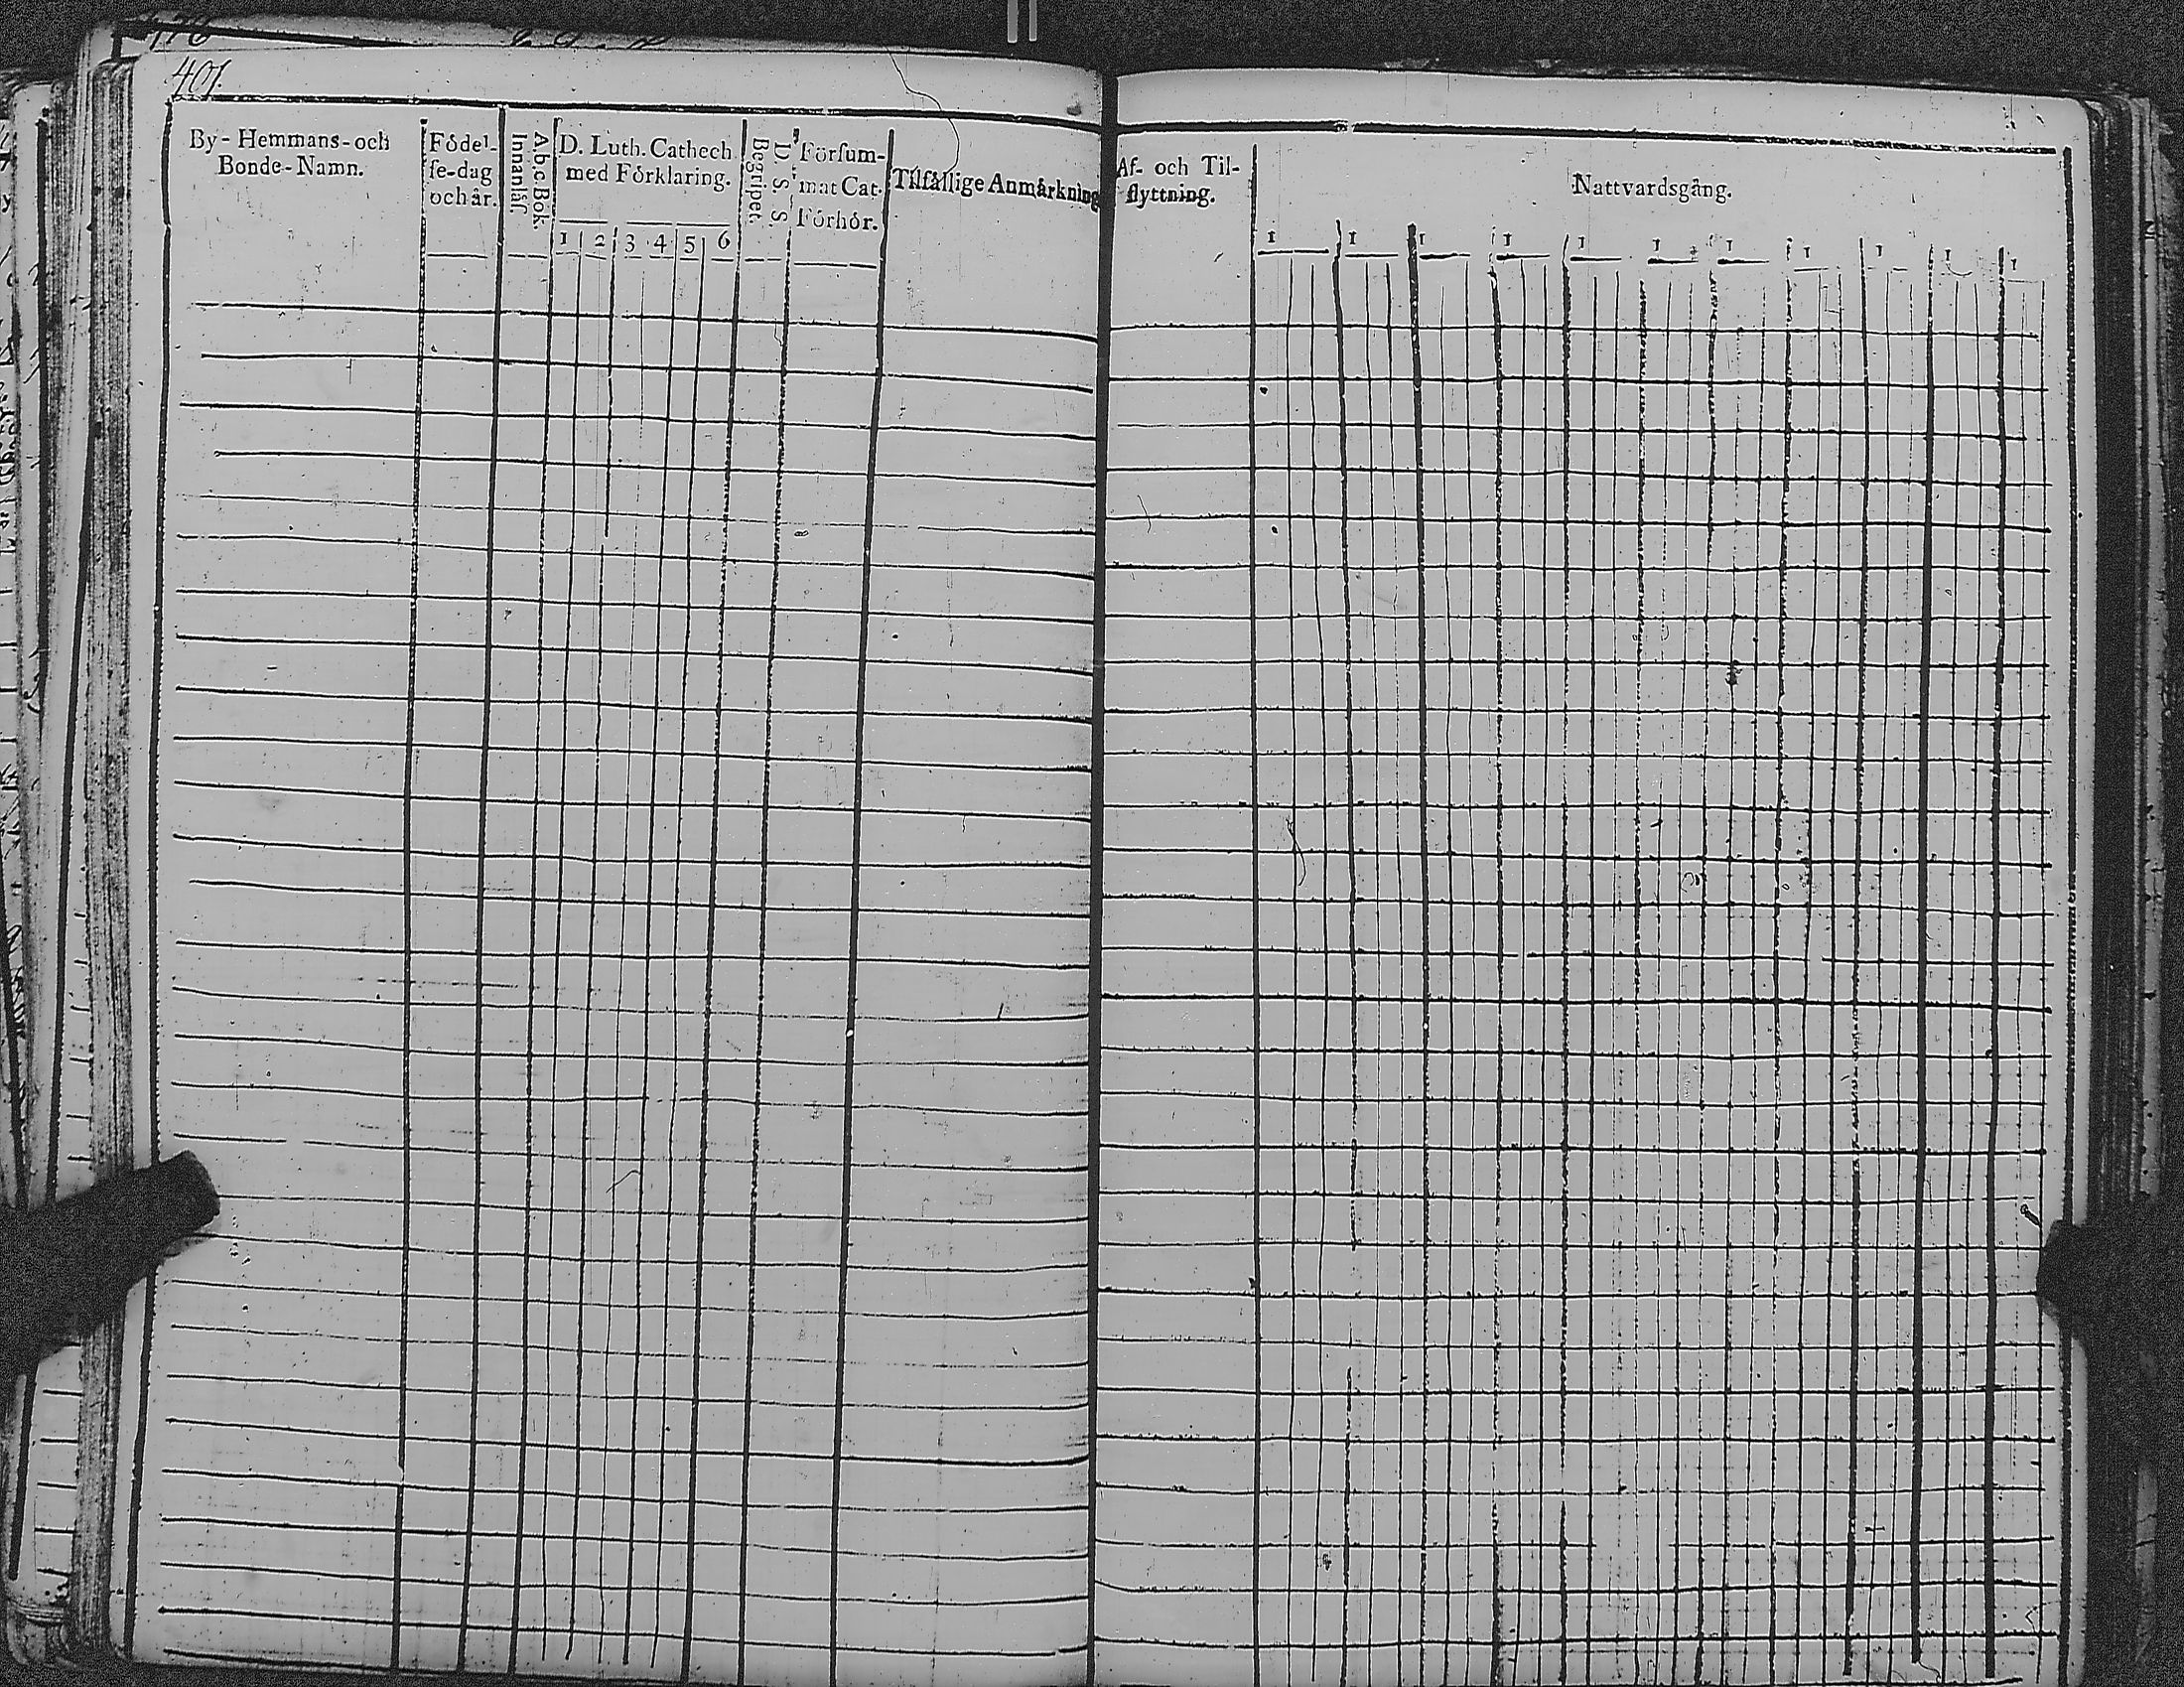 401.
By- Hemmans- och
Bonde-Namn.
Födel-
se-dag
och år.
A.b.c Bok.
Innanläs.
D. Luth. Cathech
med Förklaring.
1 2 3 4 5 6
D. S. S.
Begripet.
Försum-
mat Cat.
Förhör.
Tilfällige Anmärkning
Af- och Til-
flyttning.
Nattvardsgång.
1 1 1 1 1 1 1 1 1 1 1